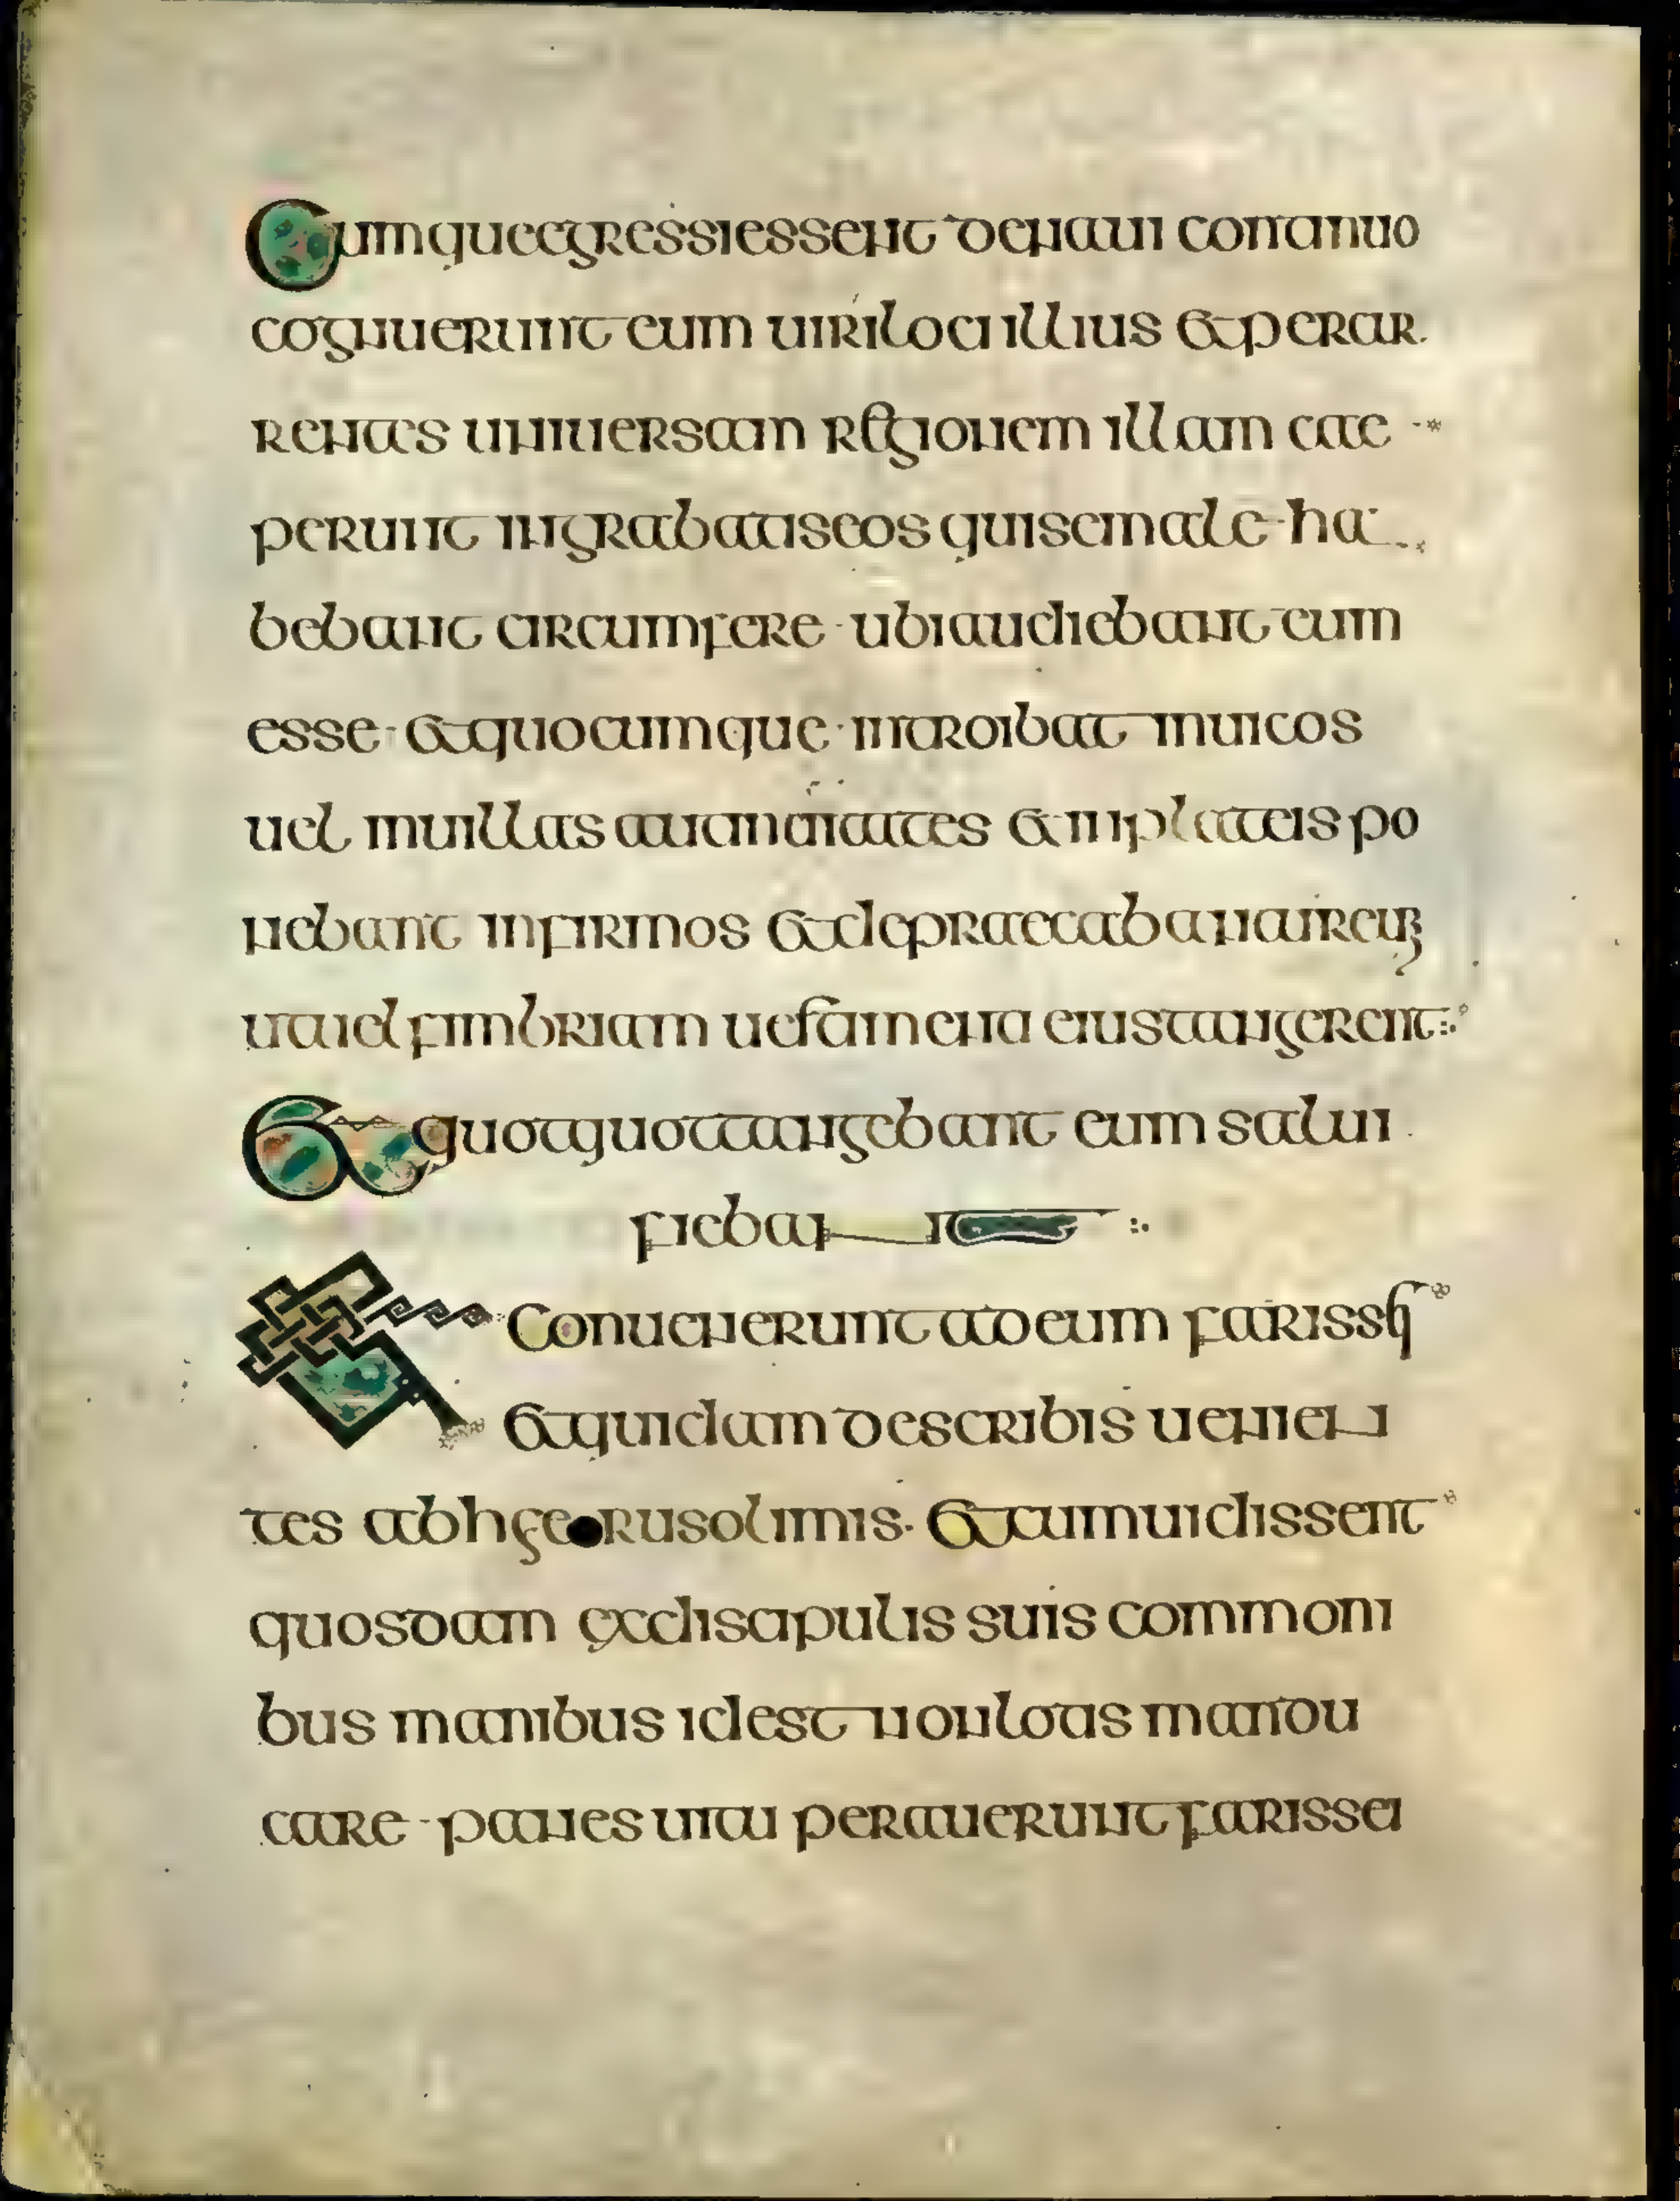 Cumque egressi essent de naui continuo
cognuerunt eum uiri loci illius et perar
rentes uniuersam regionem illam cae
perunt in grabattis eos qui se male ha
bebant circumfere · ubi audiebant eum
esse · et quocumque · introibat in uicos
uel in uillas aut in ciuitates et in plateis po
nebant infirmos et depraecabantur eum
ut uel fimbriam uestimenti eius tangerent :·
Et quotquot tangebant eum salui
fiebant :·
Et Conuenerunt ad eum farissei
et quidam de scribis uenien
tes ab hierusolimis · et cum uidissent
quosdam ex discipulis suis commoni
bus manibus id est non lotis mandu
care · panes uitu perauerunt farissei